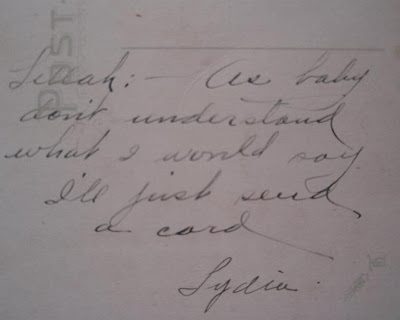 POST
:- As baby
don't understand
what I would say
I'll just send
a card
Lydia.